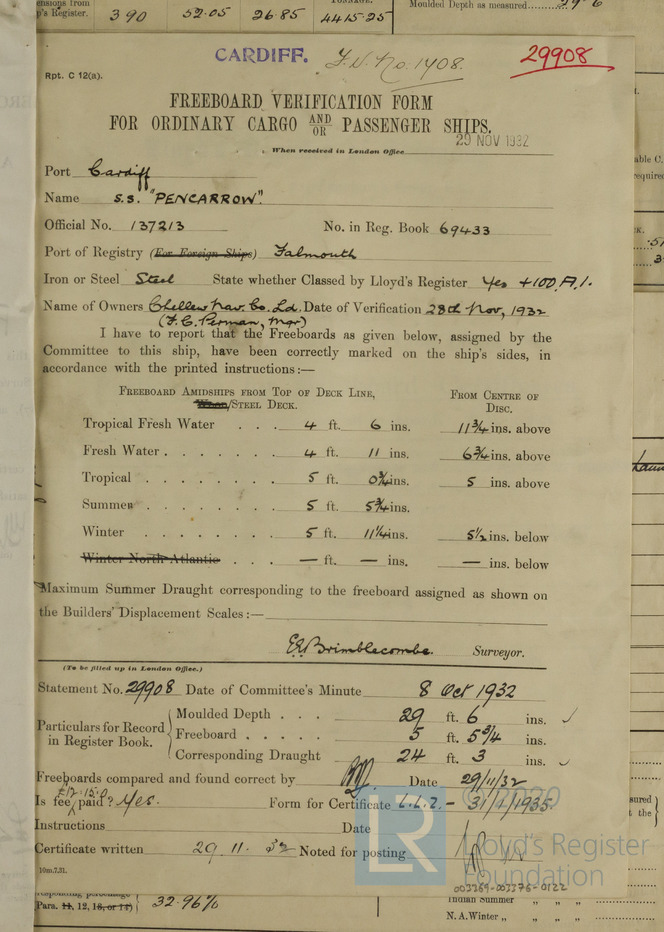 ensions from
p's Register.
390
52.05
26.85
TONNAGE.
4415.25
Moulded Depth as measured
29-6
CARDIFF.
F.V. No. 1908.
29908
Rpt. C 12(a).
FREEBOARD VERIFICATION FORM
FOR ORDINARY CARGO AND/OR PASSENGER SHIPS.
29 NOV 1932
When received in London Office
Port Cardiff
Name S.S. "PENCARROW".
Official No. 137213 No. in Reg. Book 69433
Port of Registry (For Foreign Ships) Falmouth
Iron or Steel Steel State whether Classed by Lloyd's Register Yes +100.A.1.
Name of Owners Chellew Nav. Co. Ld. Date of Verification 28th Nov, 1932
(F.C. Perman, Mgr)
I have to report that the Freeboards as given below, assigned by the
Committee to this ship, have been correctly marked on the ship's sides, in
accordance with the printed instructions :—
FREEBOARD AMIDSHIPS FROM TOP OF DECK LINE, FROM CENTRE OF
/STEEL DECK. DISC.
Tropical Fresh Water . . . 4 ft. 6 ins. 11 3/4 ins. above
Fresh Water . . . . . . 4 ft. 11 ins. 6 3/4 ins. above
Tropical . . . . . . . 5 ft. 0 3/4 ins. 5 ins. above
Summer . . . . . . . 5 ft. 5 3/4 ins.
Winter . . . . . . . 5 ft. 11 1/4 ins. 5 1/2 ins. below
Winter North Atlantic . . . — ft. — ins. — ins. below
Maximum Summer Draught corresponding to the freeboard assigned as shown on
the Builders' Displacement Scales :—
E.E. Brimblecombe. Surveyor.
(To be filled up in London Office.)
Statement No. 29908 Date of Committee's Minute 8 Oct 1932
Particulars for Record in Register Book.
Moulded Depth . . . 29 ft. 6 ins. ✓
Freeboard . . . . . 5 ft. 5 3/4 ins.
Corresponding Draught 24 ft. 3 ins. ✓
Freeboards compared and found correct by Date 29/11/32
£12.15.0
Is fee paid? Yes. Form for Certificate L.L.2. - 31/1/1935.
Instructions Date
Certificate written 29.11.32 Noted for posting
10m.7.31.
© 2020
LR Lloyd's Register
Foundation
003369-003376-0122
Para. 11, 12, 13, or 14) 32.96%
Indian Summer „ „ „
N.A. Winter „ „ „ „